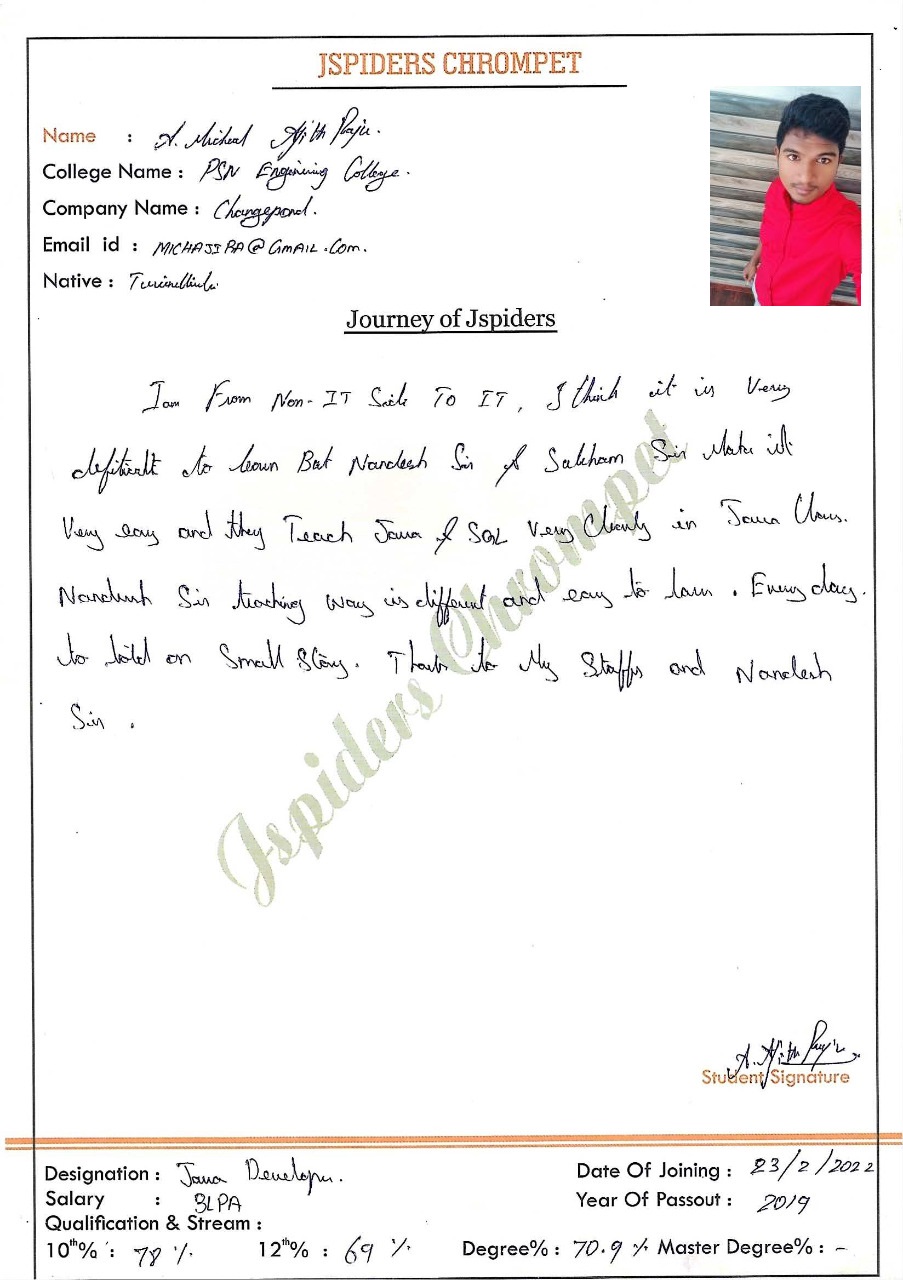 JSPIDERS CHROMPET
Name : A. Micheal Ajith Raju.
College Name : PSN Enginering College.
Company Name : Changepond.
Email id : MICHAJIRA@GMAIL.COM.
Native :
Journey of Jspiders
I am From Non-IT Side To IT, I think it is Very
to learn But Nandesh Sir & Sir Make it
Very easy and they Teach Java & SQL Very Clearly in Java Class.
Nandesh Sir teaching way is different and easy to learn. Every day.
to told on Small Story. Thanks to My Staffs and Nandesh
Sir.
Jspiders Chrompet
A. Ajith Raju
Student Signature
Designation : Java Developer.
Date Of Joining : 23/2/2022
Salary : 3LPA
Year Of Passout : 2019
Qualification & Stream :
10th% : 78 % 12th% : 69 % Degree% : 70.9 % Master Degree% : -